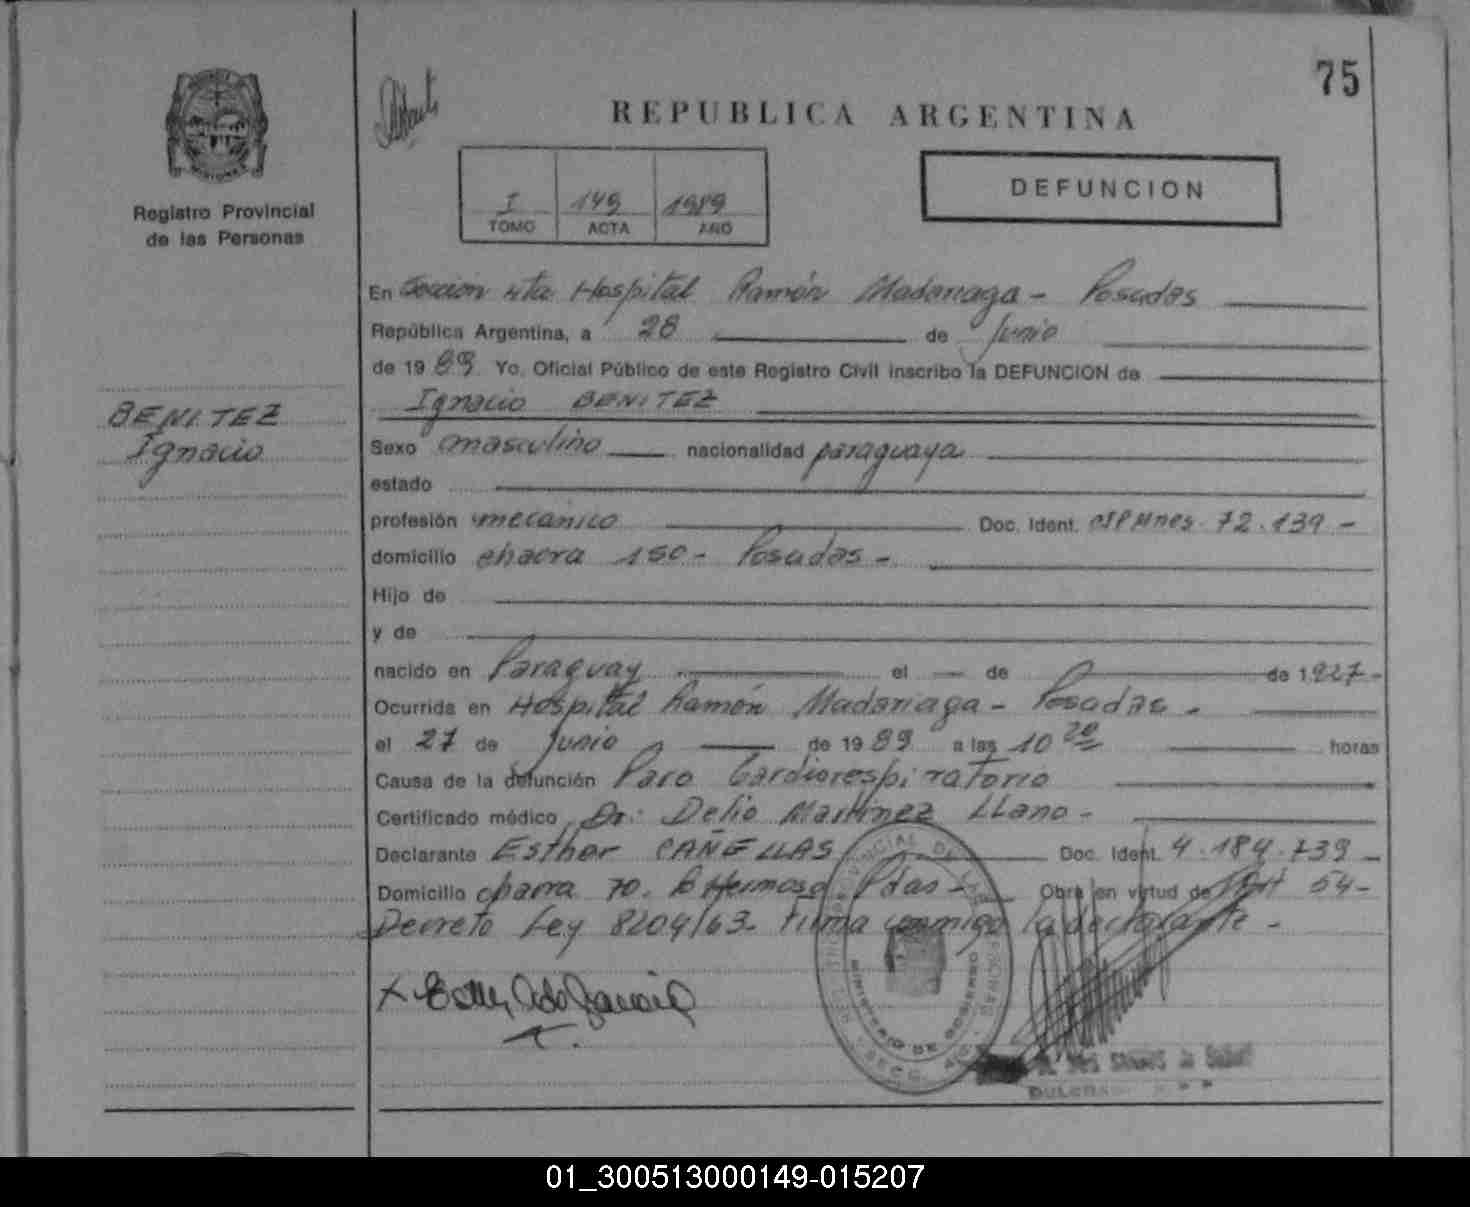 75
REPUBLICA ARGENTINA
DEFUNCION
I 149 1989
TOMO ACTA AÑO
Registro Provincial
de las Personas
BENITEZ
Ignacio
En Sección 4ta Hospital Ramón Madariaga - Posadas
República Argentina, a 28 de Junio
de 1989 Yo, Oficial Público de este Registro Civil inscribo la DEFUNCION de
Ignacio BENITEZ
Sexo masculino nacionalidad paraguaya
estado
profesión mecánico Doc. Ident. 72.139-
domicilio chacra 150- Posadas-
Hijo de
y de
nacido en Paraguay el — de de 1927-
Ocurrida en Hospital Ramón Madariaga - Posadas-
el 27 de Junio de 1989 a las 10 20 horas
Causa de la defunción Paro Cardiorespiratorio
Certificado médico Dr: Delio Martinez LLano-
Declarante Esther CAÑELLAS Doc. Ident. 4.184.739-
Domicilio chacra 70. Hermosa Pdas- Obra en virtud de 54-
Decreto Ley 8204/63- Firma conmigo la declarante-
MINISTERIO DE GOBIERNO
01_300513000149-015207